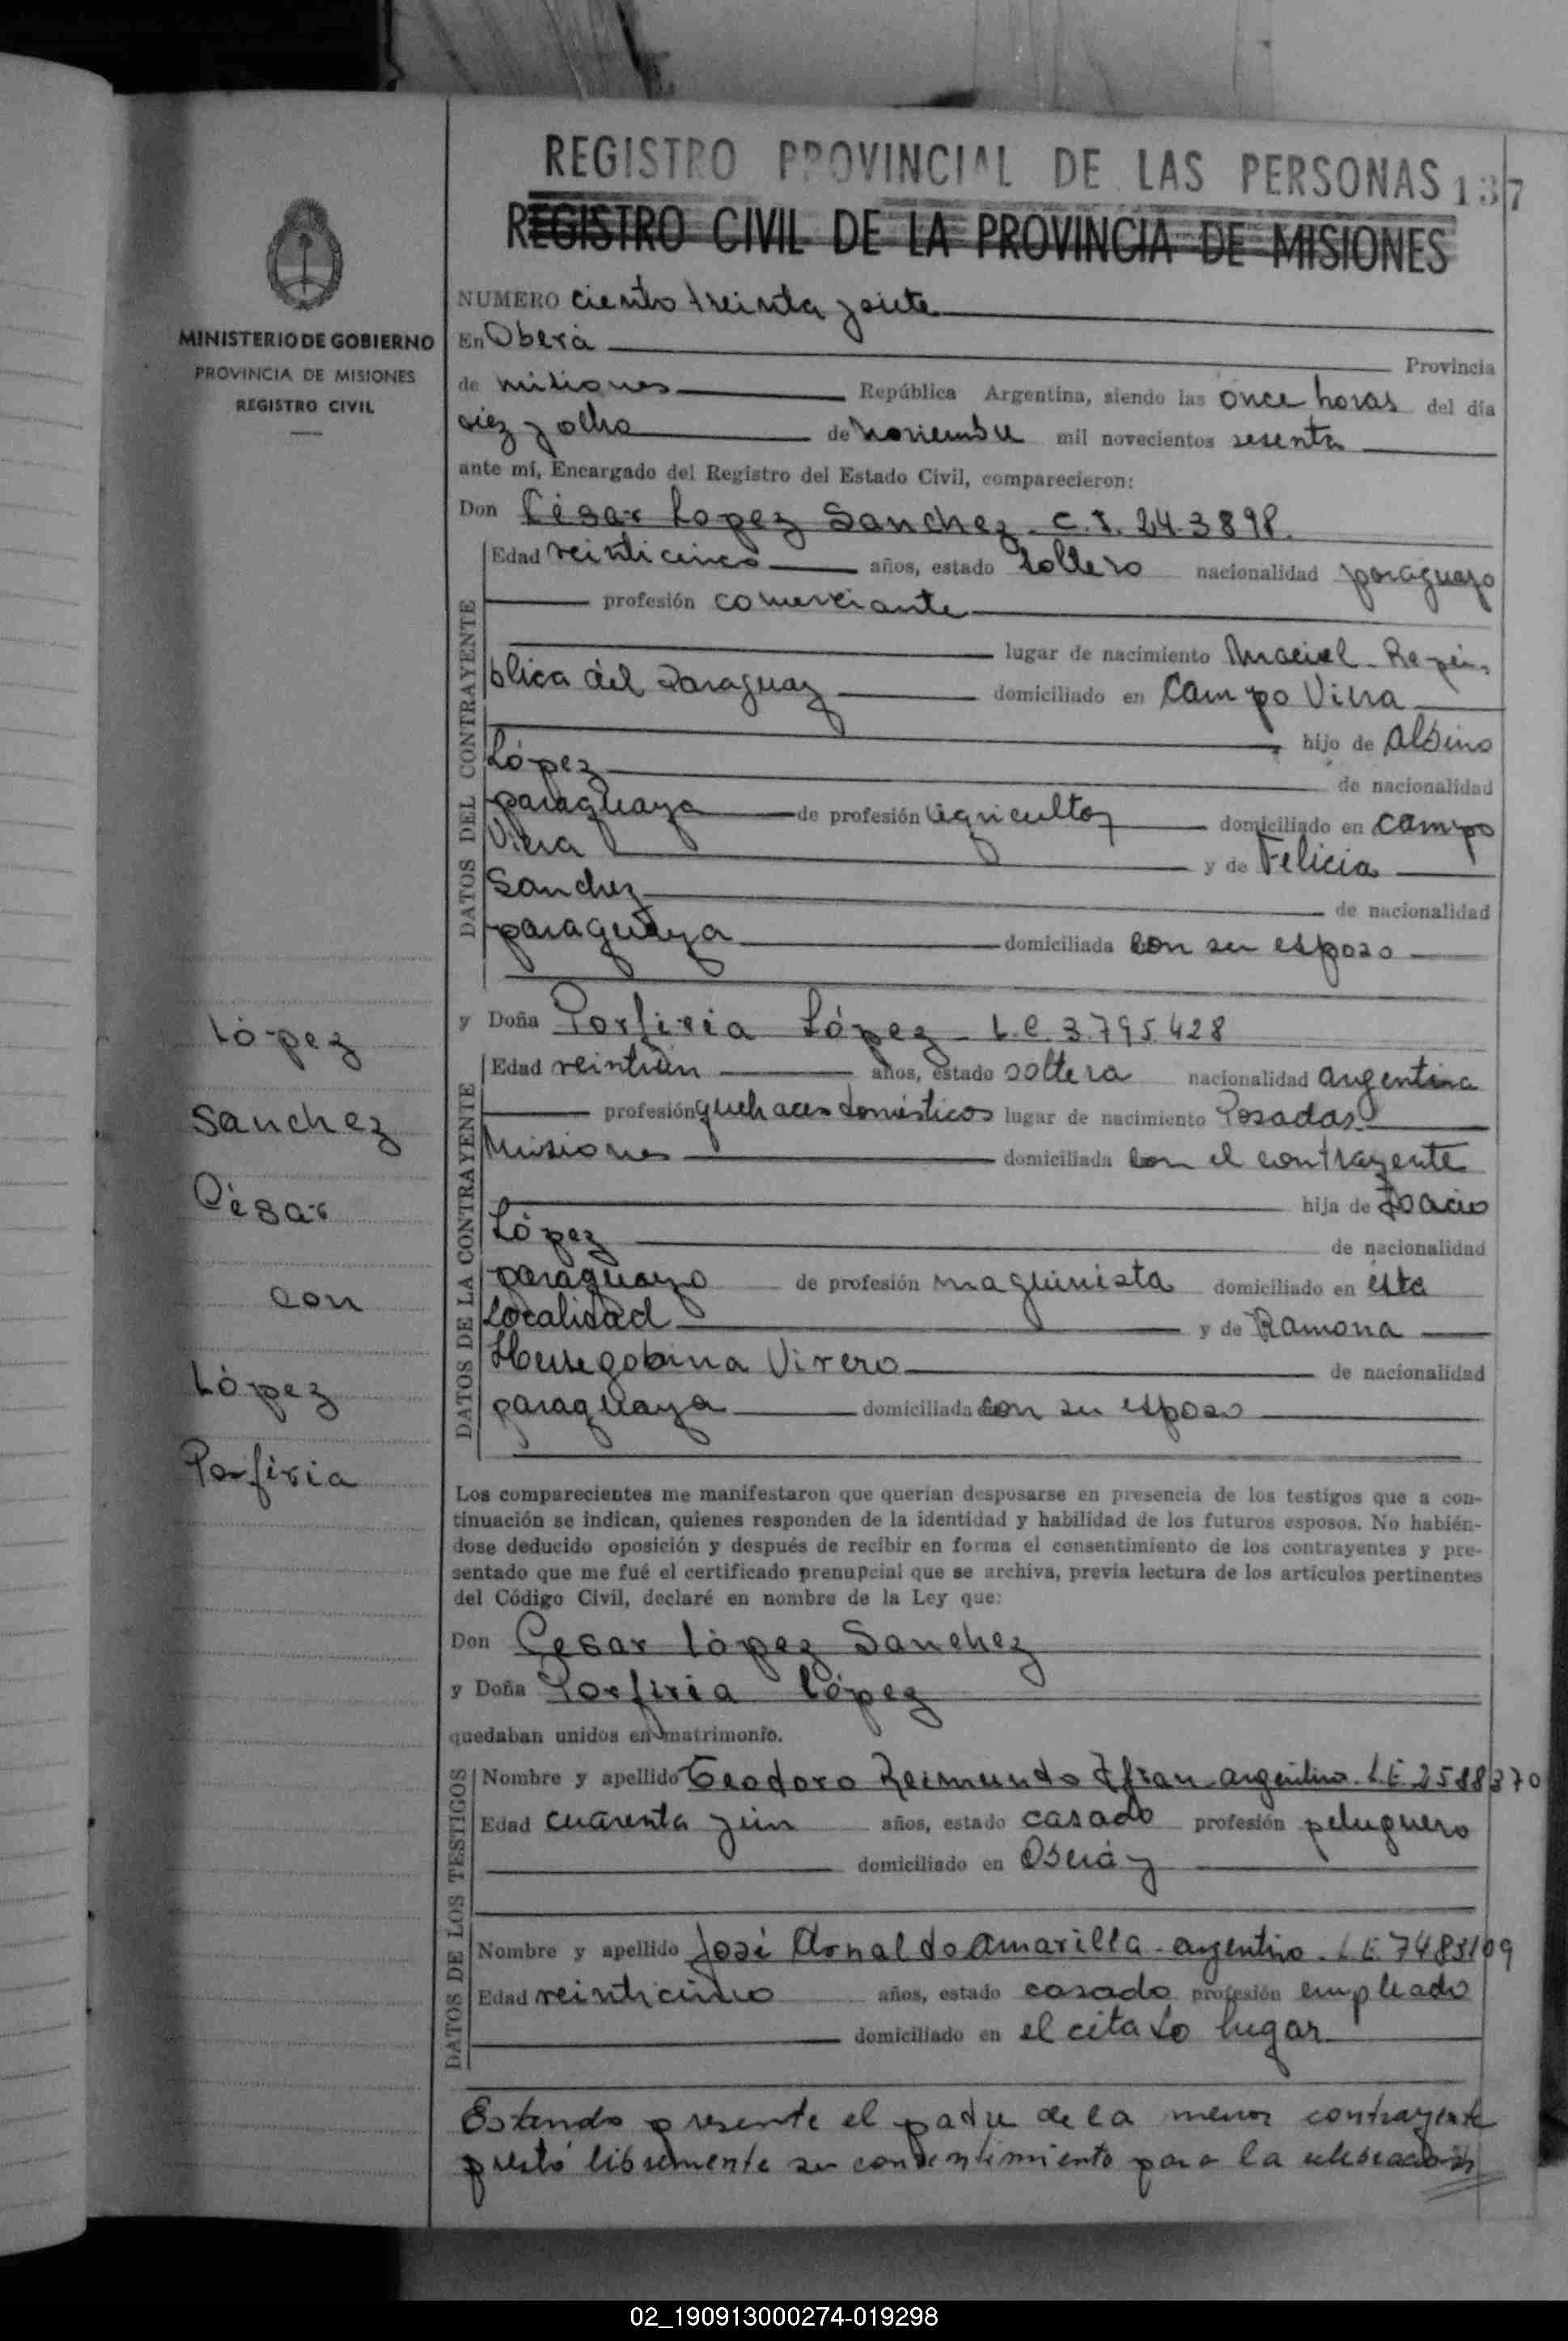 REGISTRO PROVINCIAL DE LAS PERSONAS 137
REGISTRO CIVIL DE LA PROVINCIA DE MISIONES
MINISTERIO DE GOBIERNO
PROVINCIA DE MISIONES
REGISTRO CIVIL
NUMERO ciento treinta y siete
En Oberá
Provincia
de misiones República Argentina, siendo las once horas del día
diez y ocho de noviembre mil novecientos sesenta
ante mí, Encargado del Registro del Estado Civil, comparecieron:
Don César Lopez Sanchez - C.I. 243898.
Edad veinticinco años, estado soltero nacionalidad paraguayo
profesión comerciante
lugar de nacimiento Maciel - Repú-
blica del Paraguay domiciliado en Campo Viera
hijo de Albino
López
de nacionalidad
paraguaya de profesión agricultor domiciliado en campo
Viera y de Felicia
Sanchez de nacionalidad
paraguaya domiciliada con su esposo
y Doña Porfiria López - L.C. 3.795.428
Edad veintiún años, estado soltera nacionalidad argentina
profesión quehaceres domésticos lugar de nacimiento Posadas
Misiones domiciliada con el contrayente
hija de
López de nacionalidad
paraguayo de profesión maquinista domiciliado en ésta
localidad y de Ramona
de nacionalidad
paraguaya domiciliada con su esposo
DATOS DEL CONTRAYENTE
DATOS DE LA CONTRAYENTE
López
Sanchez
César
con
López
Porfiria
Los comparecientes me manifestaron que querían desposarse en presencia de los testigos que a con-
tinuación se indican, quienes responden de la identidad y habilidad de los futuros esposos. No habién-
dose deducido oposición y después de recibir en forma el consentimiento de los contrayentes y pre-
sentado que me fué el certificado prenupcial que se archiva, previa lectura de los artículos pertinentes
del Código Civil, declaré en nombre de la Ley que:
Don Cesar López Sanchez
y Doña Porfiria López
quedaban unidos en matrimonio.
DATOS DE LOS TESTIGOS
Nombre y apellido Teodoro Reimundo Ifran - argentino - L.E. 2588370
Edad cuarenta y un años, estado casado profesión peluquero
domiciliado en Oberá y
Nombre y apellido José Arnaldo Amarilla - argentino - L.E. 7483109
Edad veinticinco años, estado casado profesión empleado
domiciliado en el citado lugar
Estando presente el padre de la menor contrayente
prestó libremente su consentimiento para la celebración
02_190913000274-019298